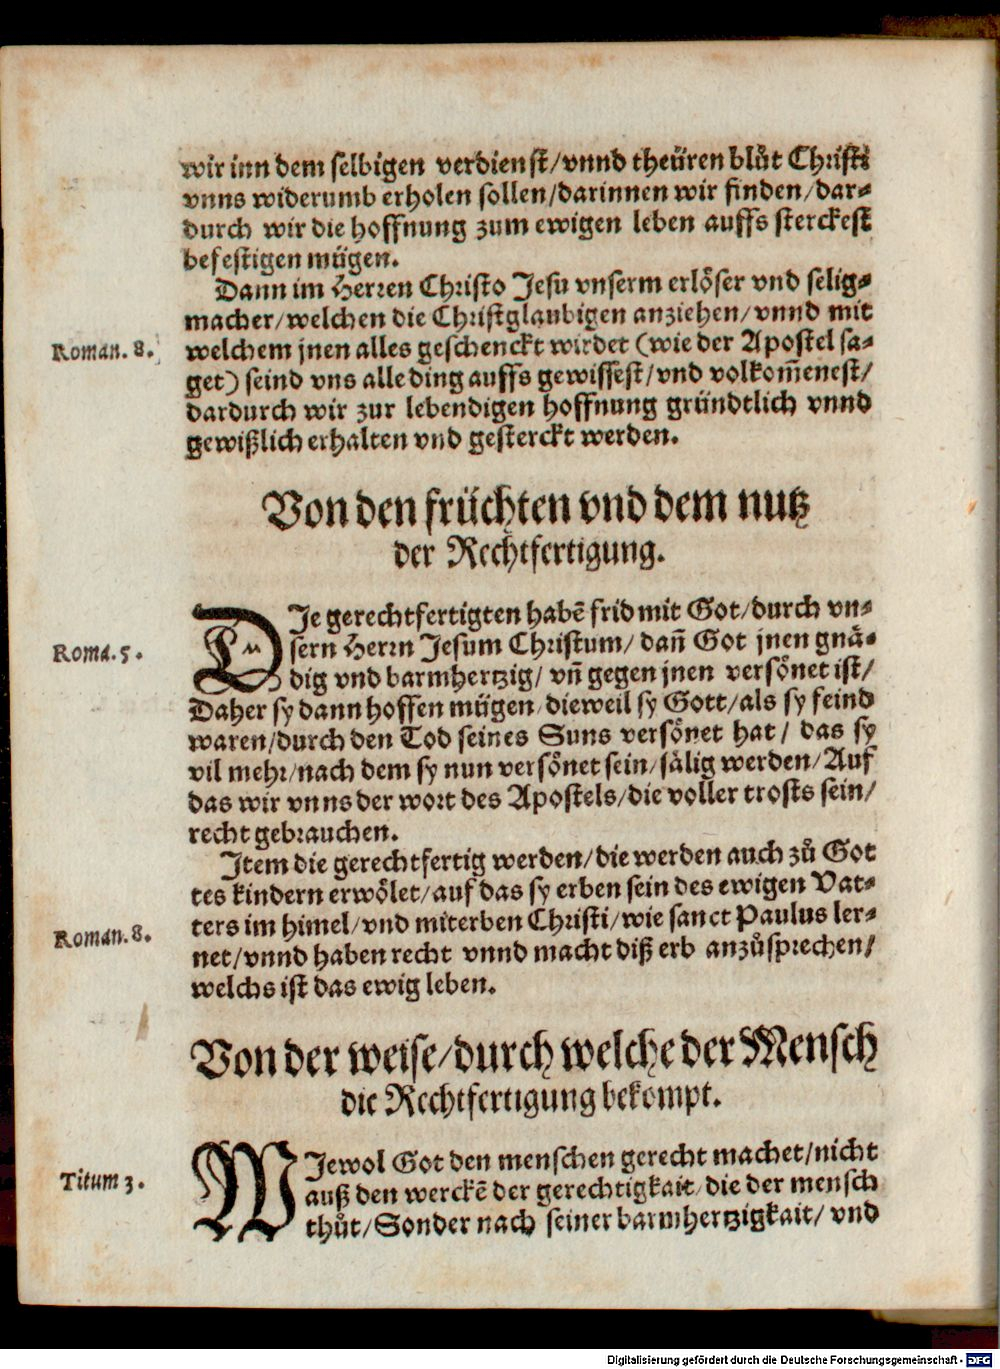 wir inn dem selbigen verdienst/vnnd theüren blůt Christi
vnns widerumb erholen sollen/darinnen wir finden/dar-
durch wir die hoffnung zum ewigen leben auffs sterckest
befestigen mügen.
Dann im Herren Christo Jesu vnserm erlöser vnd selig-
macher/welchen die Christglaubigen anziehen/vnnd mit
Roman. 8.
welchem jnen alles geschenckt wirdet (wie der Apostel sa-
get) seind vns alle ding auffs gewissest/vnd volkom̃enest/
dardurch wir zur lebendigen hoffnung gründtlich vnnd
gewißlich erhalten vnd gesterckt werden.
Von den früchten vnd dem nutz
der Rechtfertigung.
DJe gerechtfertigten habẽ frid mit Got/durch vn-
Roma. 5.
sern Herrn Jesum Christum/ dañ Got jnen gnä-
dig vnd barmhertzig/ vñ gegen jnen versönet ist/
Daher sy dann hoffen mügen/dieweil sy Gott/als sy feind
waren/durch den Tod seines Suns versönet hat/ das sy
vil mehr/nach dem sy nun versönet sein/sälig werden/Auf
das wir vnns der wort des Apostels/die voller trosts sein/
recht gebrauchen.
Jtem die gerechtfertig werden/die werden auch zů Got
tes kindern erwölet/auf das sy erben sein des ewigen Vat-
ters im himel/vnd miterben Christi/wie sanct Paulus ler-
Roman. 8.
net/vnnd haben recht vnnd macht diß erb anzůsprechen/
welchs ist das ewig leben.
Von der weise/durch welche der Mensch
die Rechtfertigung bekompt.
WJewol Got den menschen gerecht machet/nicht
Titum 3.
auß den werckẽ der gerechtigkait/die der mensch
thůt/Sonder nach seiner barmhertzigkait/vnd
Digitalisierung gefördert durch die Deutsche Forschungsgemeinschaft - DFG